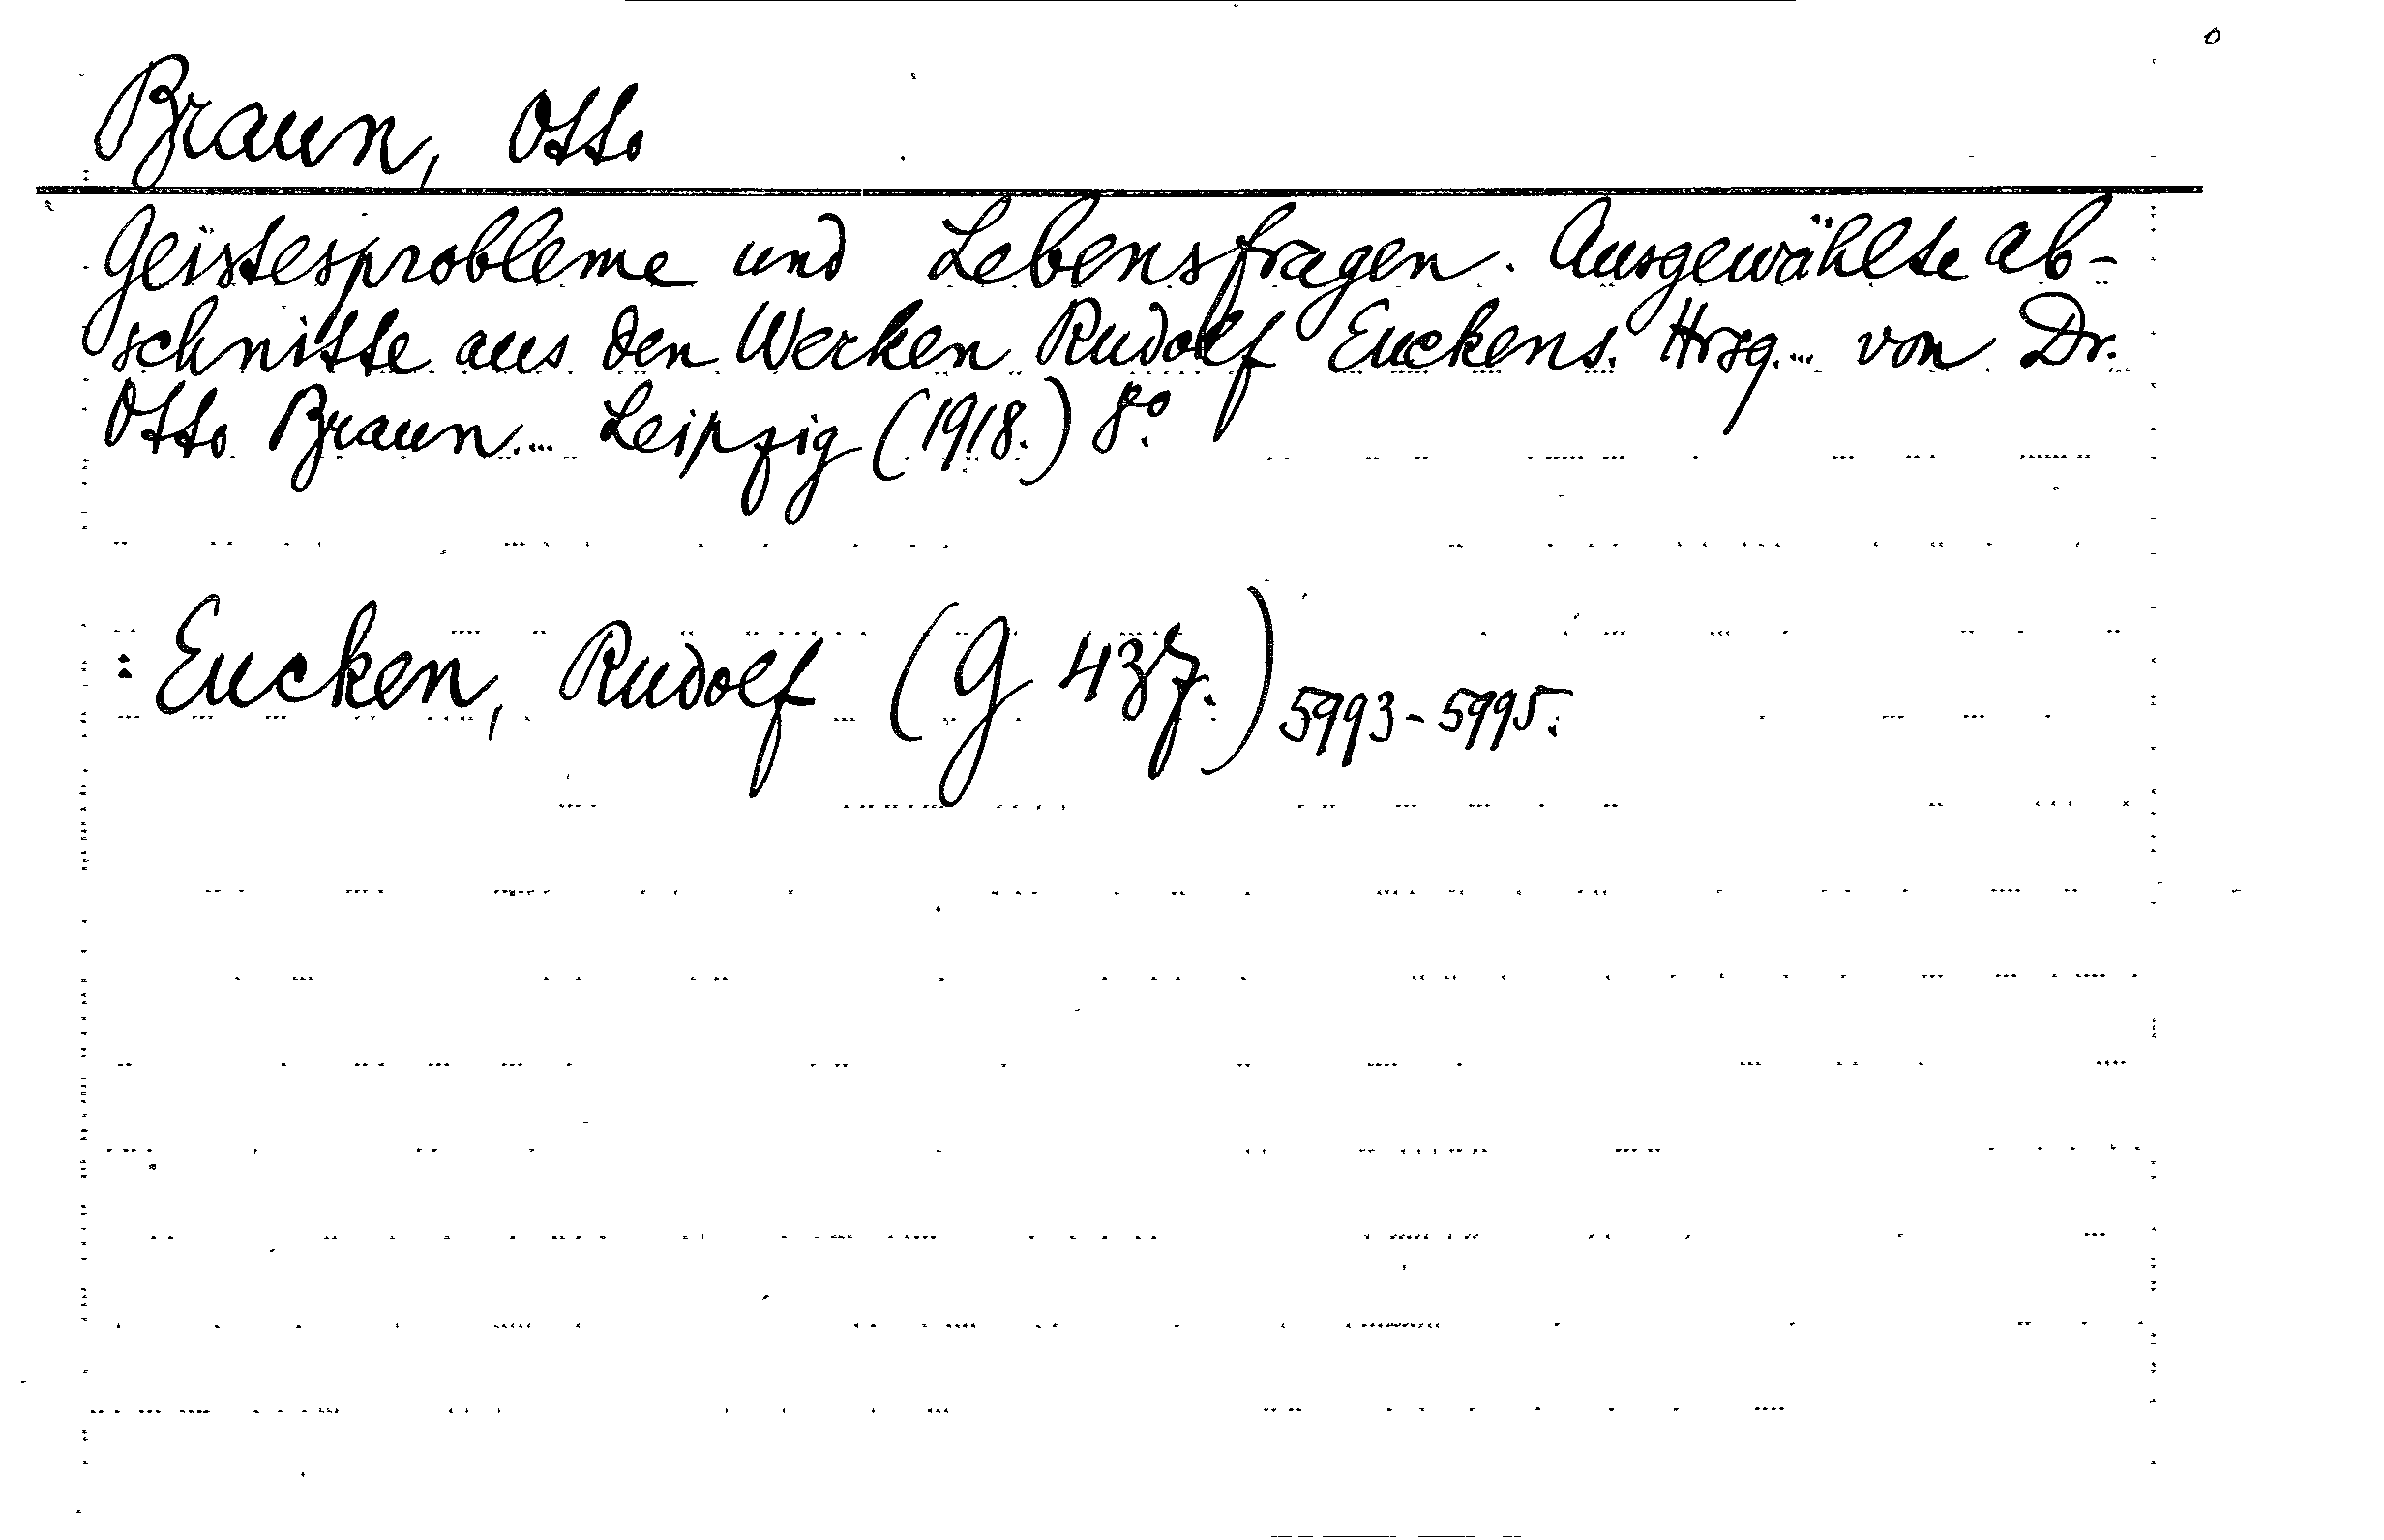 Braun, Otto
Geistesprobleme und Lebensfragen. Ausgewählte Ab-
schnitte aus den Werken Rudolf Euckens. Hrsg... von Dr.
Otto Braun... Leipzig (1918.) 8°.
: Eucken, Rudolf (G 437.) 5993-5995.